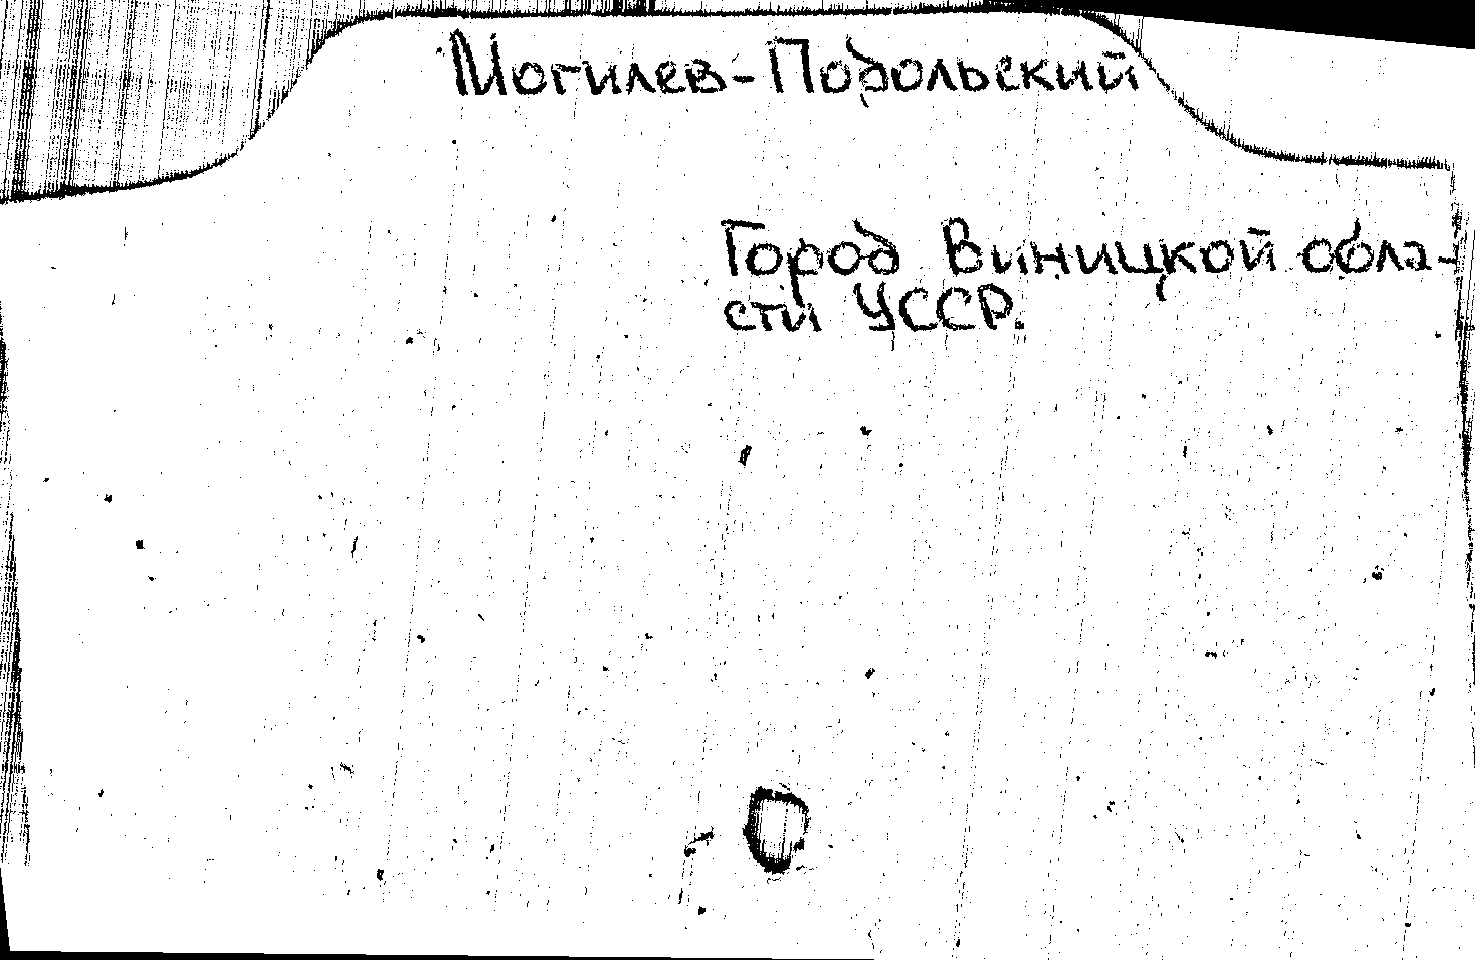 Могилев-Подольский
Город Виницкой обла-
сти УССР.